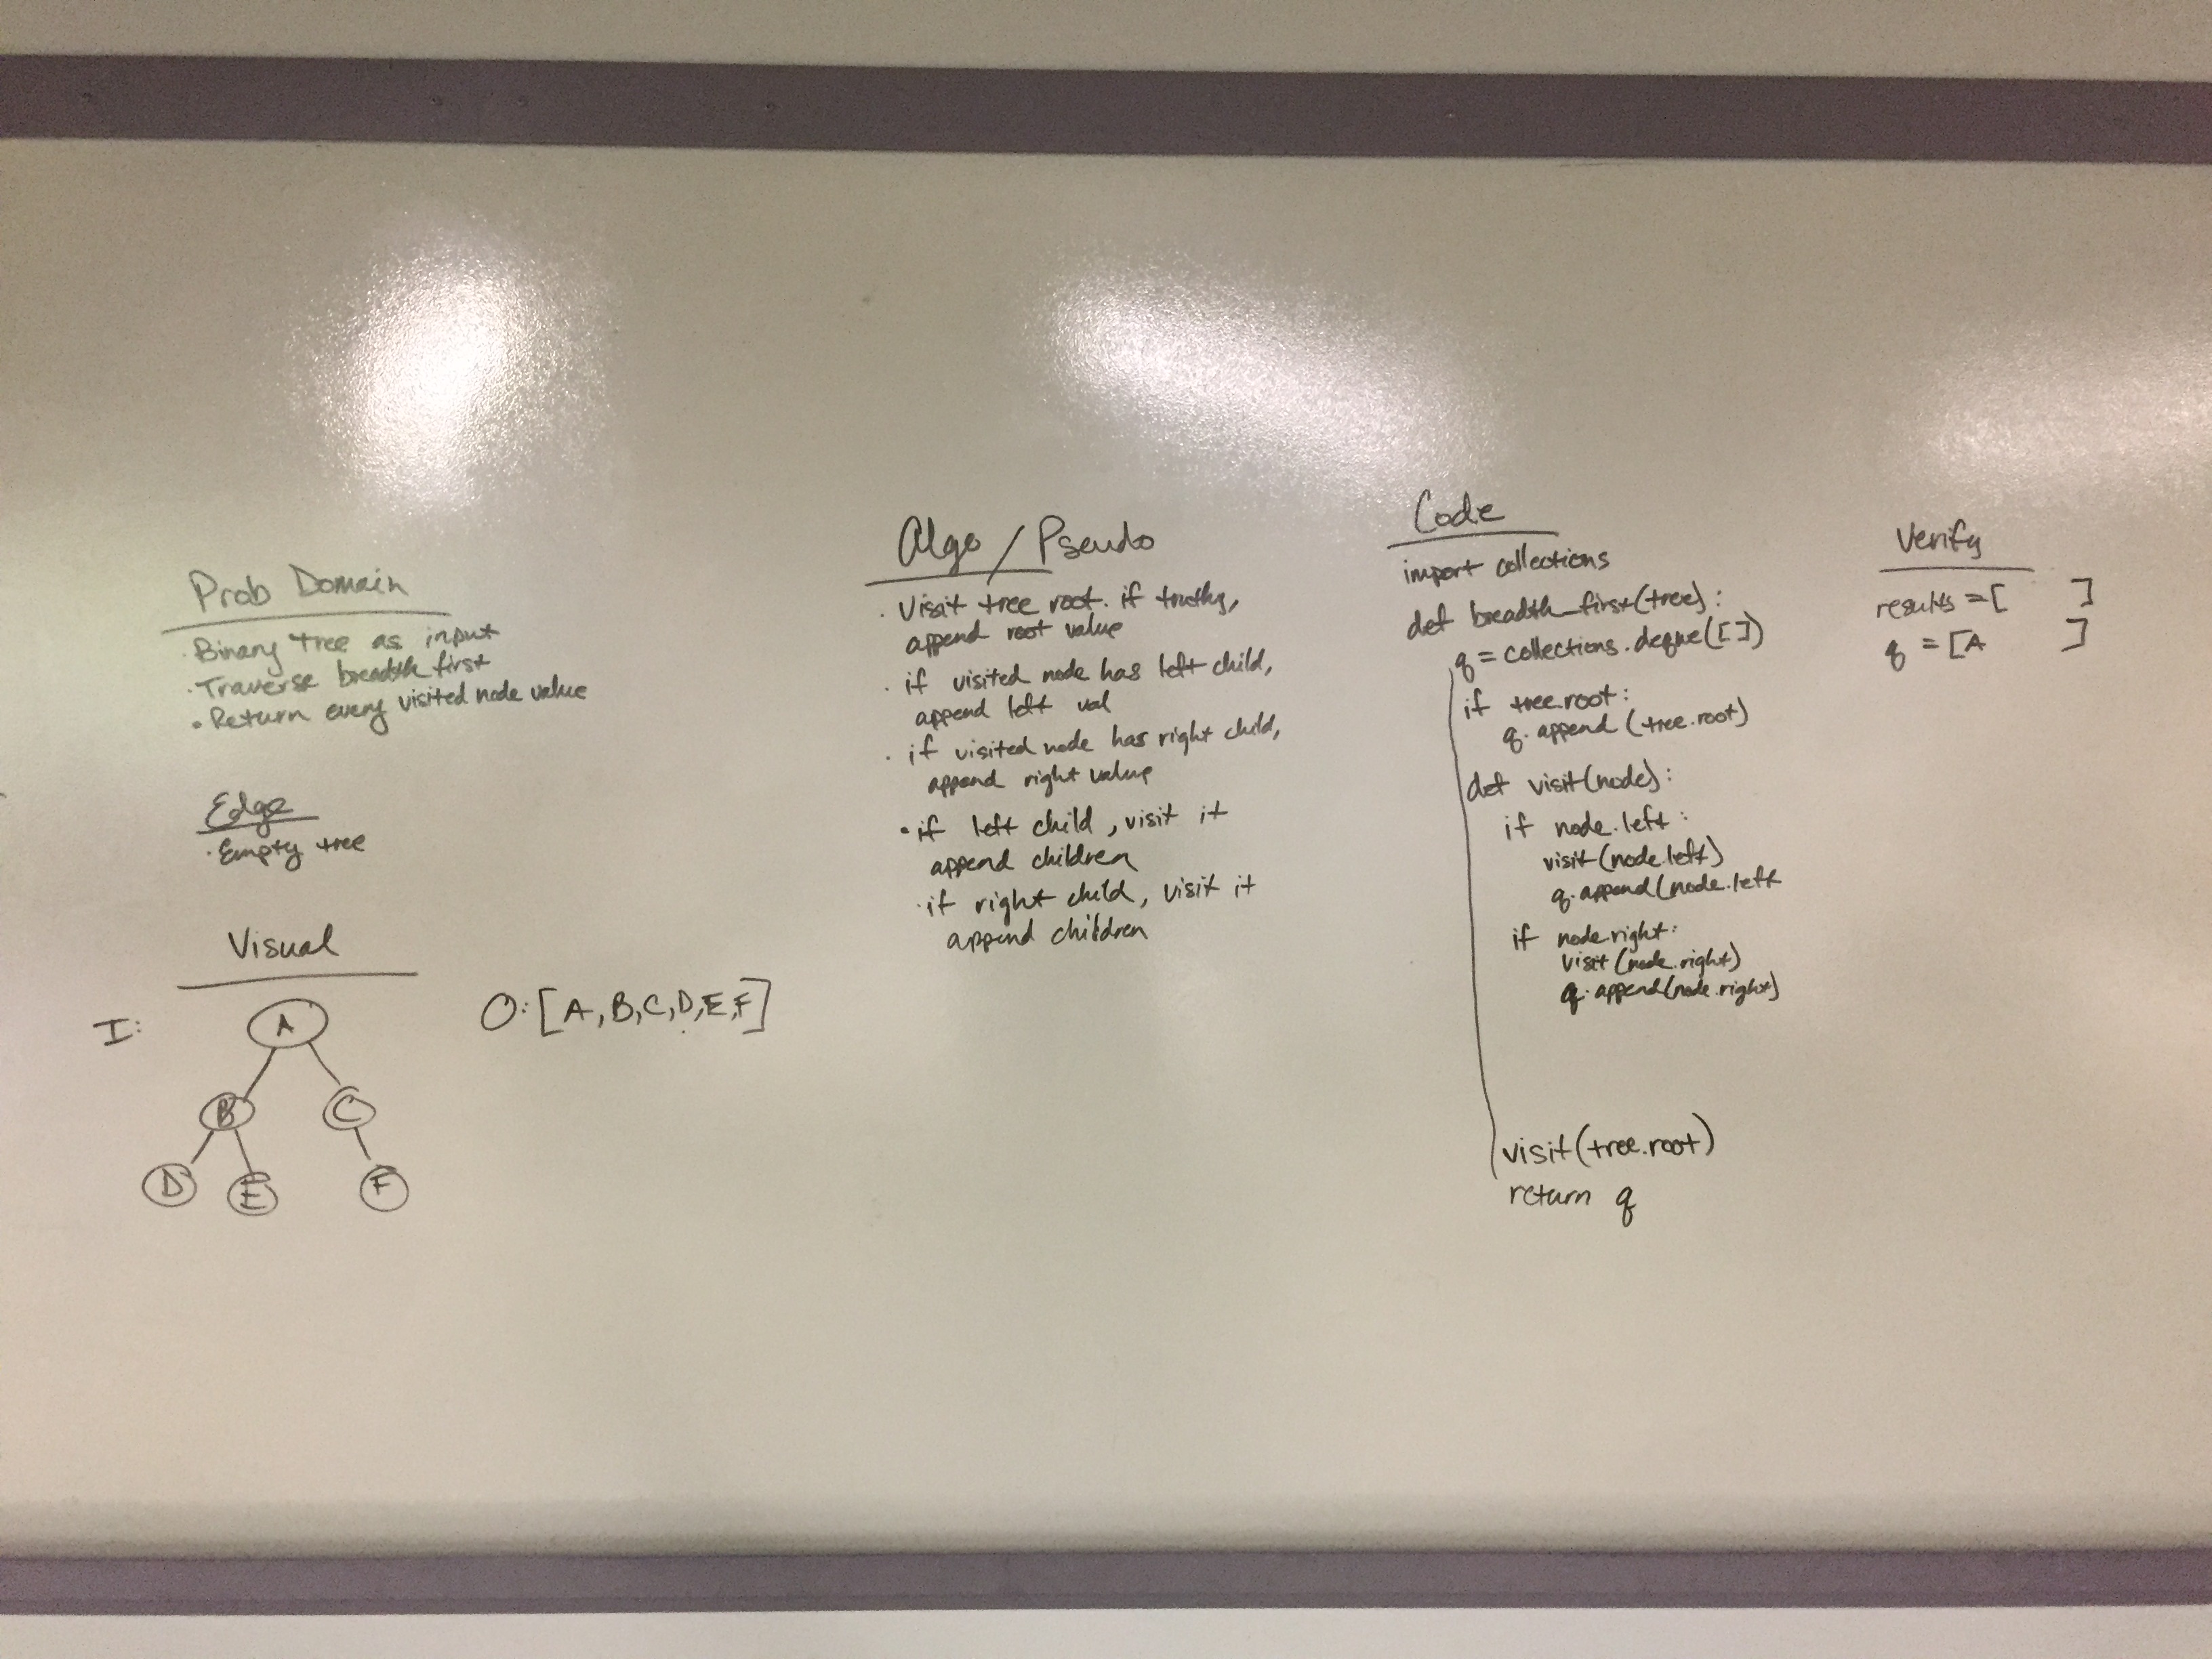 Prob Domain
· Binary tree as input
· Traverse breadth first
• Return every visited node value
Edge
· Empty tree
Visual
I:
A
B C
D E F
O: [A, B, C, D, E, F]
Algo / Pseudo
· Visit tree root. if truthy,
append root value
· if visited node has left child,
append left val
· if visited node has right child,
append right value
• if left child, visit it
append children
· if right child, visit it
append children
Code
import collections
def breadth_first(tree):
q = collections.deque([])
if tree.root:
q.append(tree.root)
def visit(node):
if node.left:
visit(node.left)
q.append(node.left
if node.right:
visit(node.right)
q.append(node.right)
visit(tree.root)
return q
Verify
results = [ ]
q = [A ]